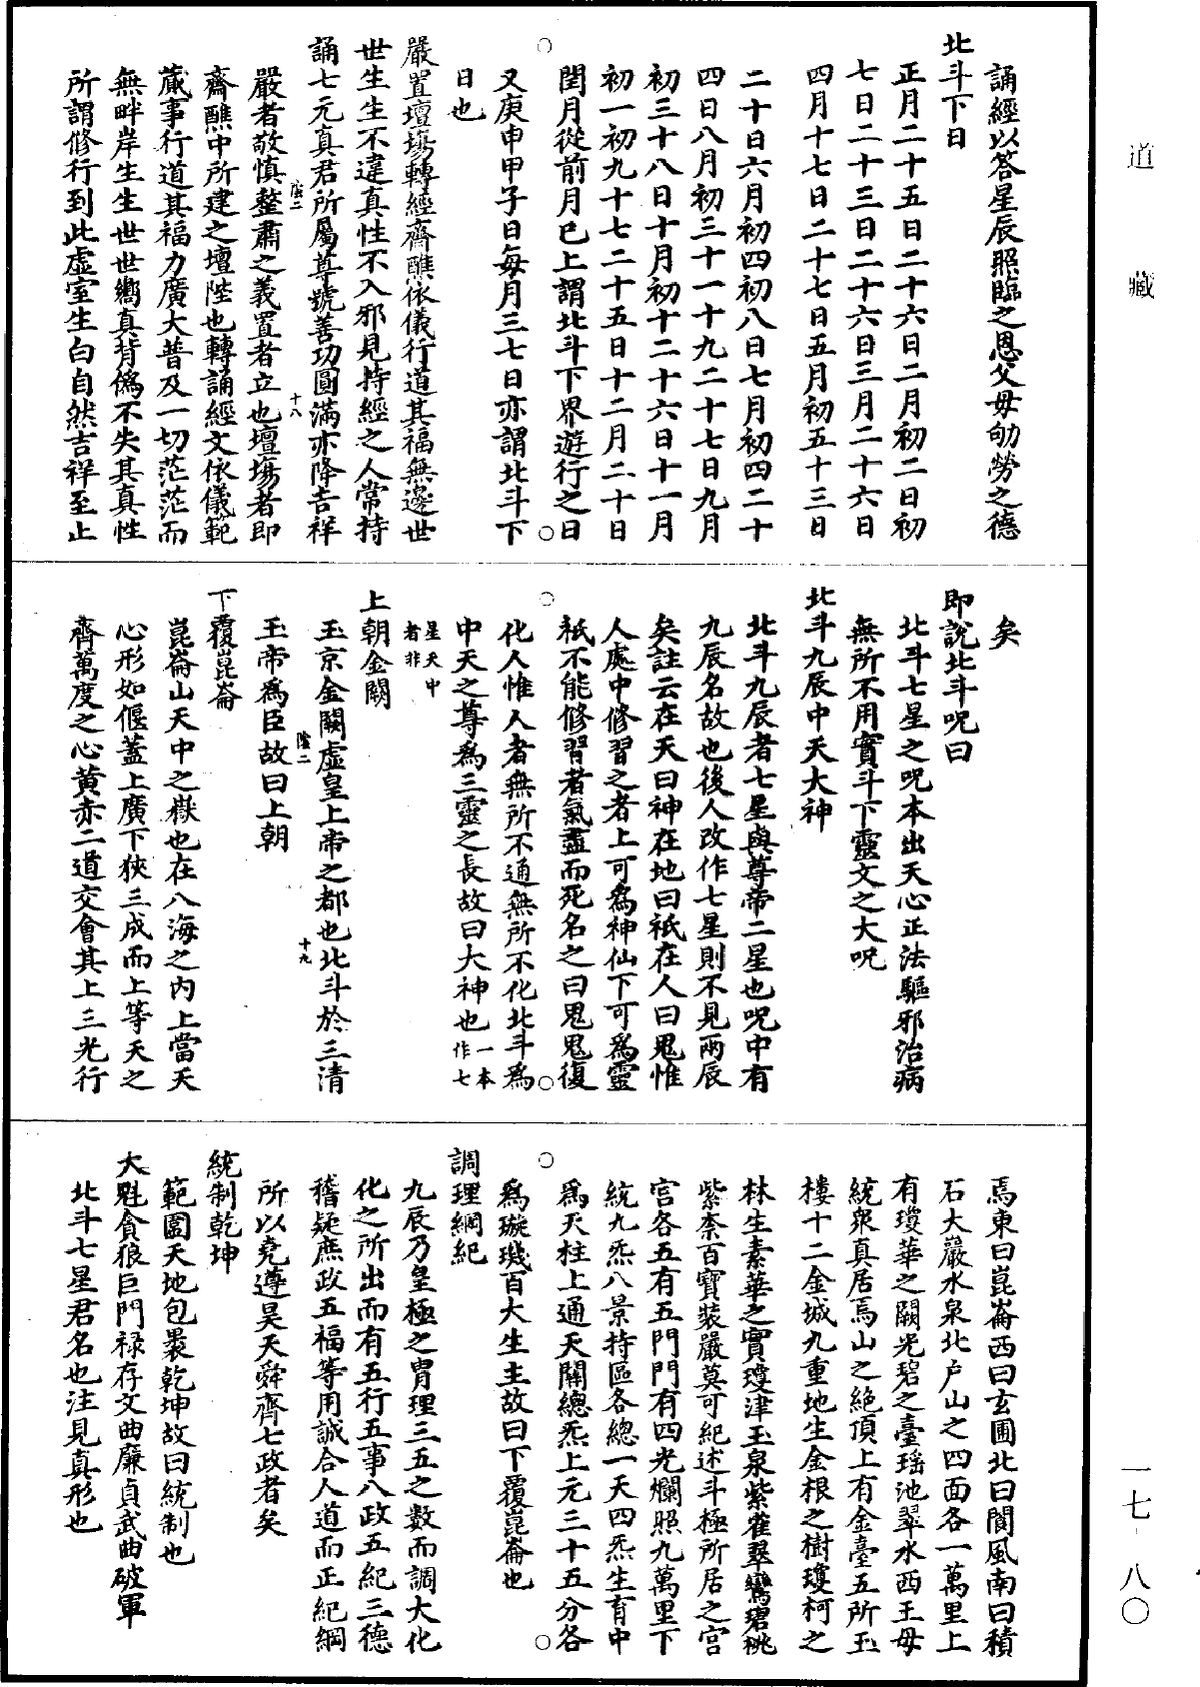 道藏
誦經以答星辰照臨之恩父母劬勞之德
北斗下日
正月二十五日二十六日二月初二日初
七日二十三日二十六日三月二十六日
四月十七日二十七日五月初五十三日
二十日六月初四初八日七月初四二十
四日八月初三十一十九二十七日九月
初三十八日十月初十二十六日十一月
初一初九十七二十五日十二月二十日
閏月從前月已上謂北斗下界遊行之日
又庚申甲子日每月三七日亦謂北斗下
日也
嚴置壇場轉經齋醮依儀行道其福無邊世
世生生不違真性不入邪見持經之人常持
誦七元真君所屬尊號善功圓滿亦降吉祥
陰二
十八
嚴者敬慎整肅之義置者立也壇場者即
齋醮中所建之壇陛也轉誦經文依儀範
蕆事行道其福力廣大普及一切茫茫而
無畔岸生生世世嚮真背僞不失其真性
所謂修行到此虛室生白自然吉祥至止
矣
即說北斗呪曰
北斗七星之呪本出天心正法驅邪治病
無所不用實斗下靈文之大呪
北斗九辰中天大神
北斗九辰者七星與尊帝二星也呪中有
九辰名故也後人改作七星則不見兩辰
矣註云在天曰神在地曰祇在人曰鬼惟
人處中修習之者上可爲神仙下可爲靈
祇不能修習者氣盡而死名之曰鬼鬼復
化人惟人者無所不通無所不化北斗爲
中天之尊爲三靈之長故曰大神也一本
作七
星天中
者非
上朝金闕
玉京金闕虛皇上帝之都也北斗於三清
陰二
十九
玉帝爲臣故曰上朝
下覆崑崙
崑崙山天中之嶽也在八海之內上當天
心形如偃蓋上廣下狹三成而上等天之
齊萬度之心黃赤二道交會其上三光行
焉東曰崑崙西曰玄圃北曰閬風南曰積
石大巖水泉北戶山之四面各一萬里上
有瓊華之闕光碧之臺瑤池翠水西王母
統衆真居焉山之絶頂上有金臺五所玉
樓十二金城九重地生金根之樹瓊柯之
林生素華之實瓊津玉泉紫雀翠鸞碧桃
紫柰百寶裝嚴莫可紀述斗極所居之宮
宮各五有五門門有四光爛照九萬里下
統九炁八景持區各總一天四炁生育中
爲天柱上通天關總炁上元三十五分各
爲璇璣百大生主故曰下覆崑崙也
調理綱紀
九辰乃皇極之胄理三五之數而調大化
化之所出而有五行五事八政五紀三德
稽疑庶政五福等用誠合人道而正紀綱
所以堯遵昊天舜齊七政者矣
統制乾坤
範圍天地包褁乾坤故曰統制也
大魁貪狼巨門祿存文曲廉貞武曲破軍
北斗七星君名也注見真形也
一七-八〇